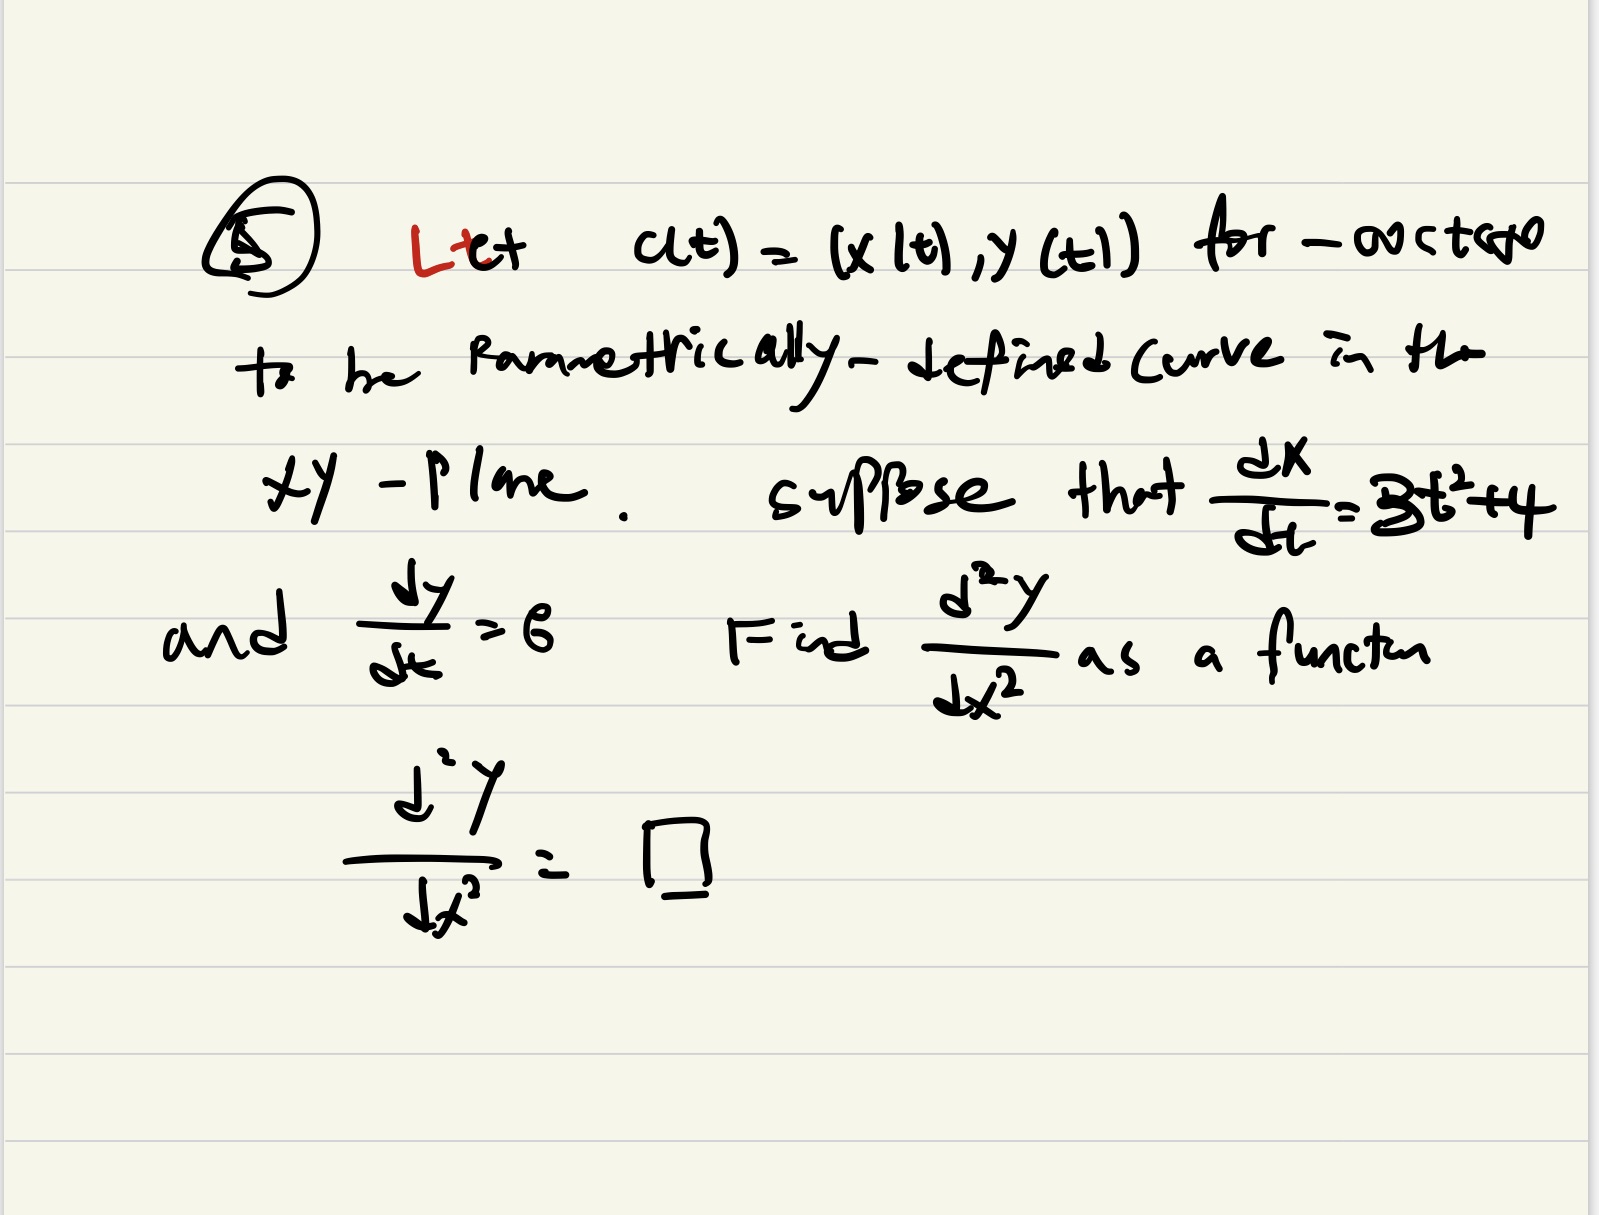 ⑤ Let c(t) = (x(t), y(t)) for -∞<t<∞
to be Parametrically-defined curve in the
xy-plane. suppose that dx/dt = 3t²+4
and dy/dt = 6 Find d²y/dx² as a function
d²y/dx² = □